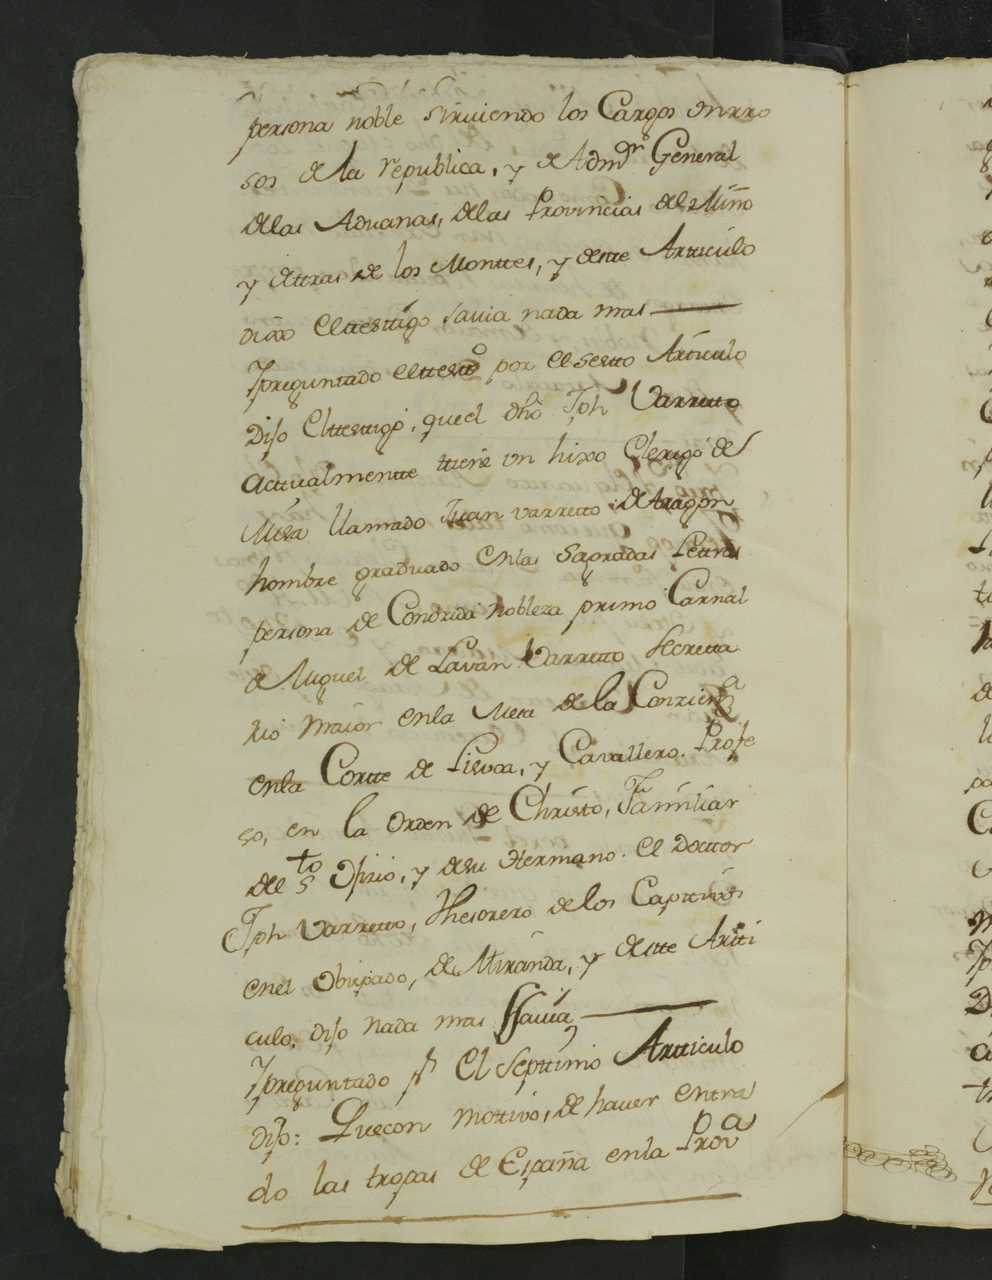 persona noble Sirviendo los Cargos onrro
sos de la republica, y de Admor General
de las Aduanas, de las Provincias del Miño
y ottras de los Monttes, y deste Artticulo
dixo El testtigo savia nada mas
Ypreguntado el testto por el sestto Articulo
Dijo El testtigo, que el dho Jph Varretto
Actualmentte ttiene un hixo Clerigo de
Misa llamado Juan varretto de Aragon
hombre graduado en las Sagradas Lettras
persona de Conozida nobleza primo Carnal
de Miguel de Lavan Varretto Secretta
rio maior en la Mesa de la Conzienza
en la Cortte de Lisvoa, y Cavallero. Profe
so, en la Orden de Christo, Familiar
del Sto Ofisio, y de su Hermano. el Docttor
Jph Varretto, Thesorero de los Capttivos
en el Obispado, de Miranda, y deste Artti
culo, dijo nada mas Ssavia
Ypreguntado pr El Septtimo Artticulo
dijo: Que con mottivo, de haver entra
do las tropas de España en la Prova